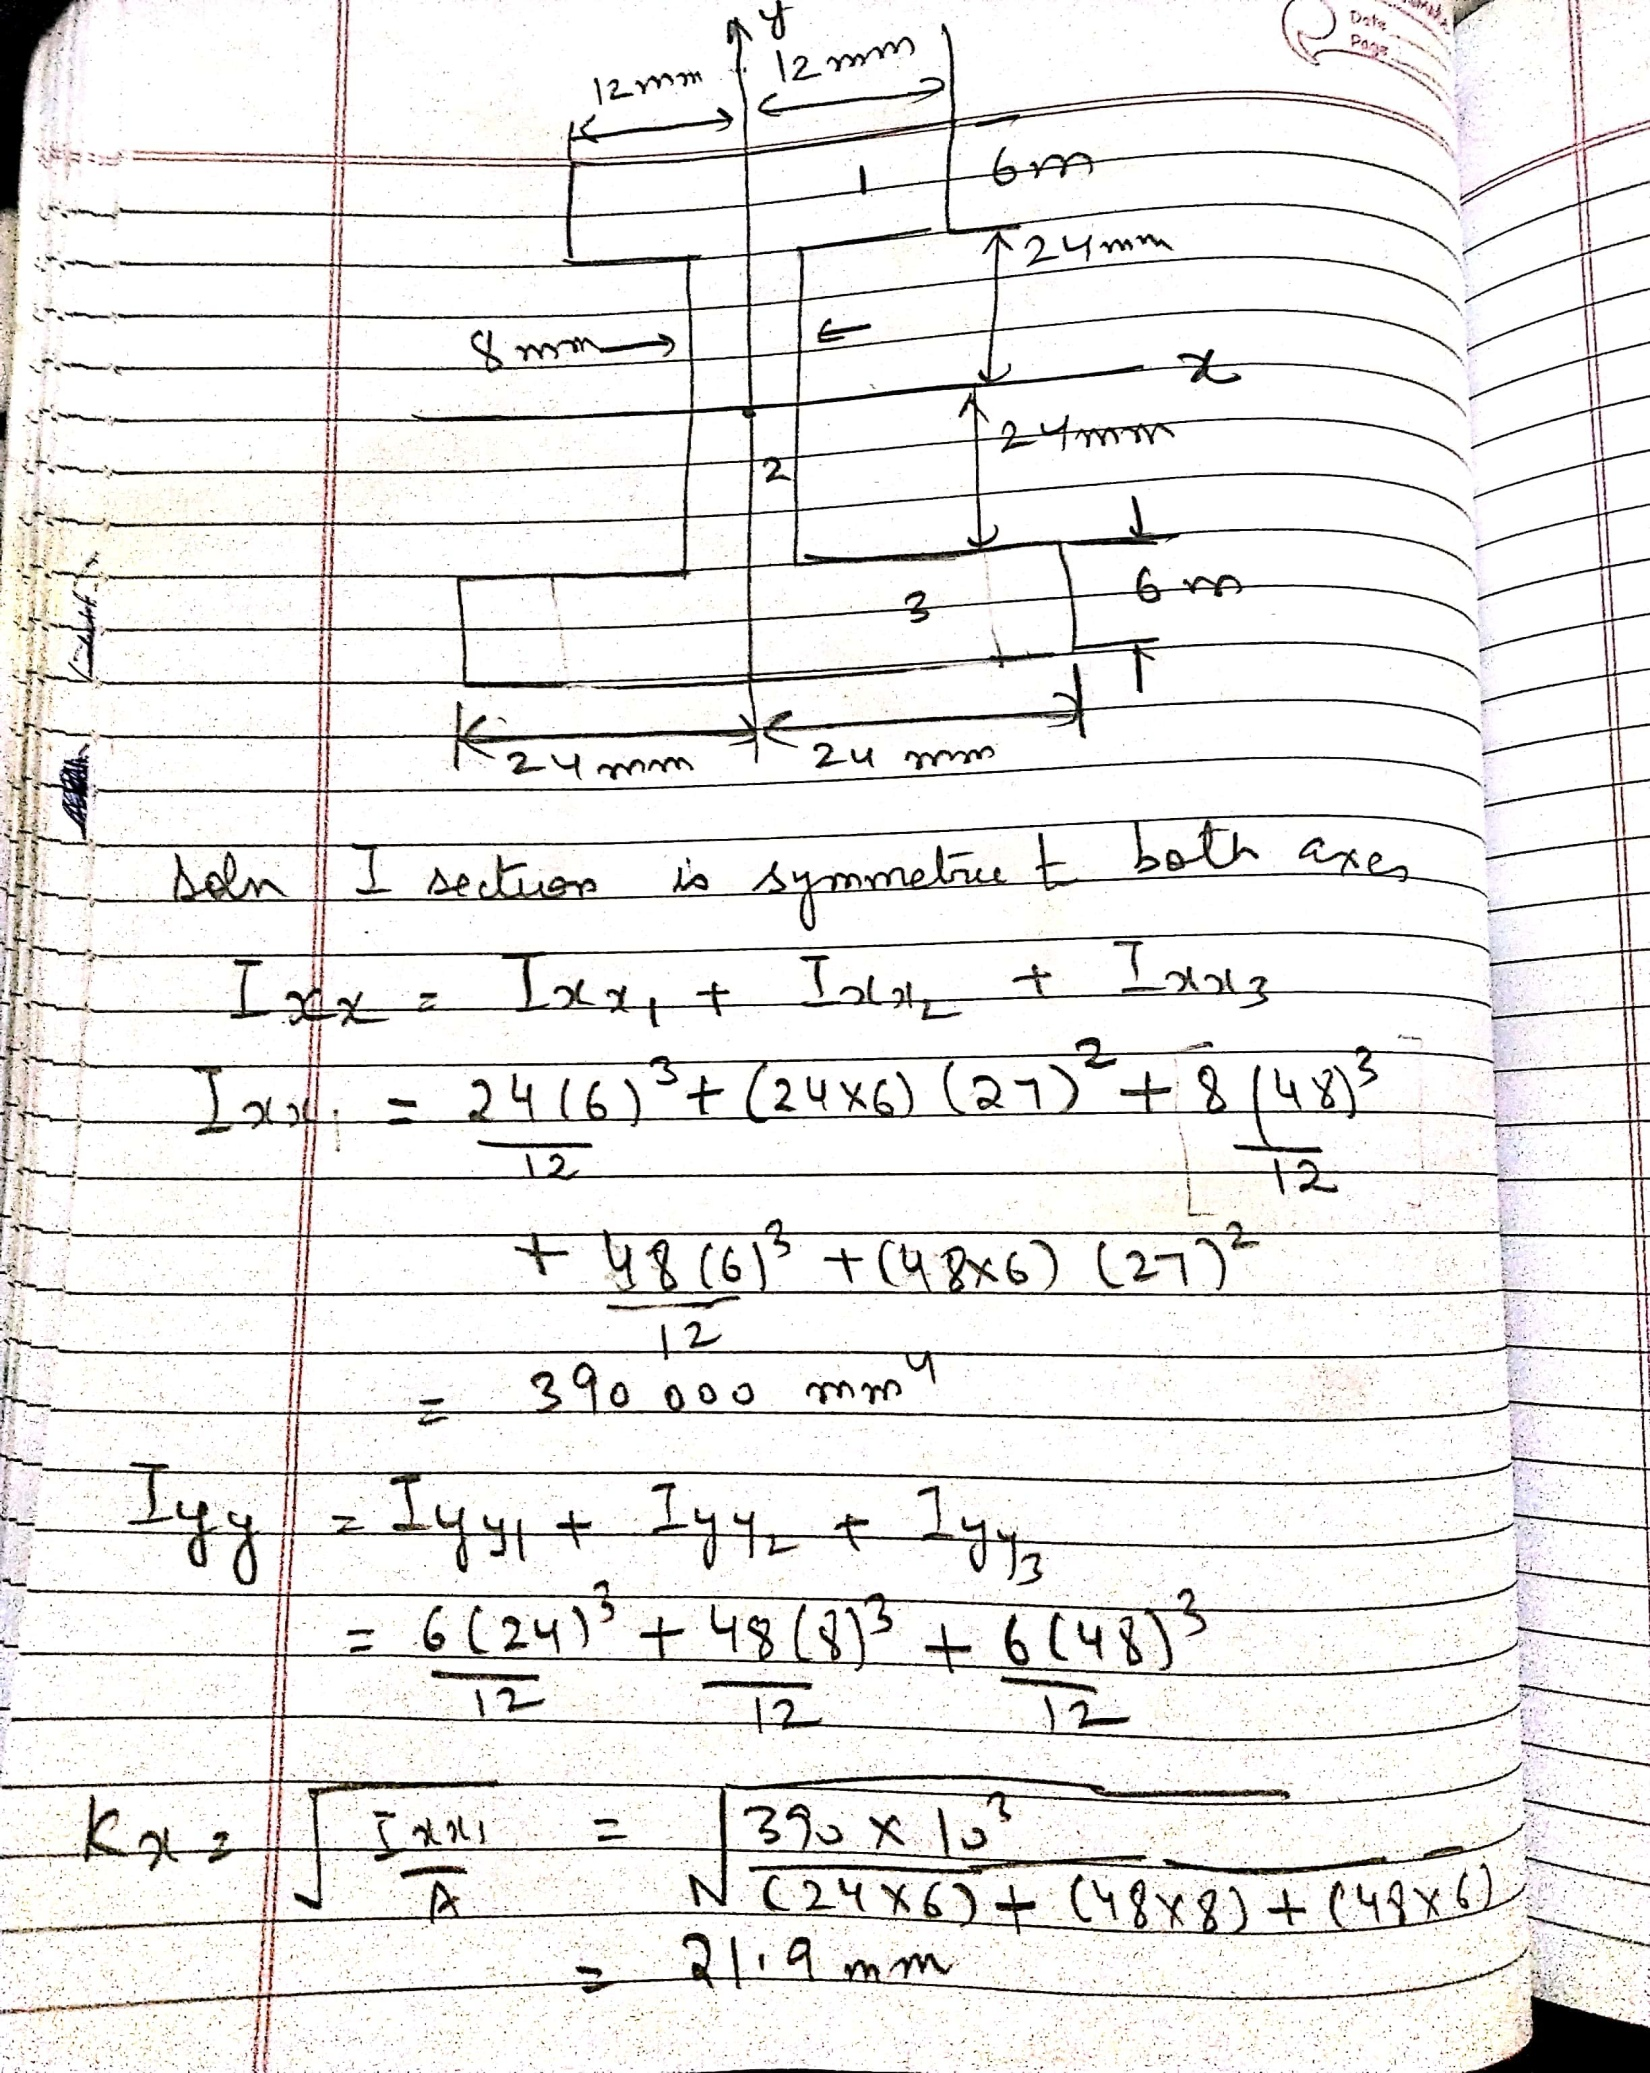 Date
Page
y
12mm 12mm
1 6m
24mm
8mm
x
24mm
2
3 6m
24mm 24mm
soln I section is symmetric t both axes
Ixx = Ixx1 + Ixx2 + Ixx3
Ixx1 = 24(6)³/12 + (24×6) (27)² + 8(48)³/12
+ 48(6)³/12 + (48×6) (27)²
= 390 000 mm⁴
Iyy = Iyy1 + Iyy2 + Iyy3
= 6(24)³/12 + 48(8)³/12 + 6(48)³/12
Kx = √(Ixx1/A) = √(390 × 10³/(24×6) + (48×8) + (48×6))
= 21.9 mm